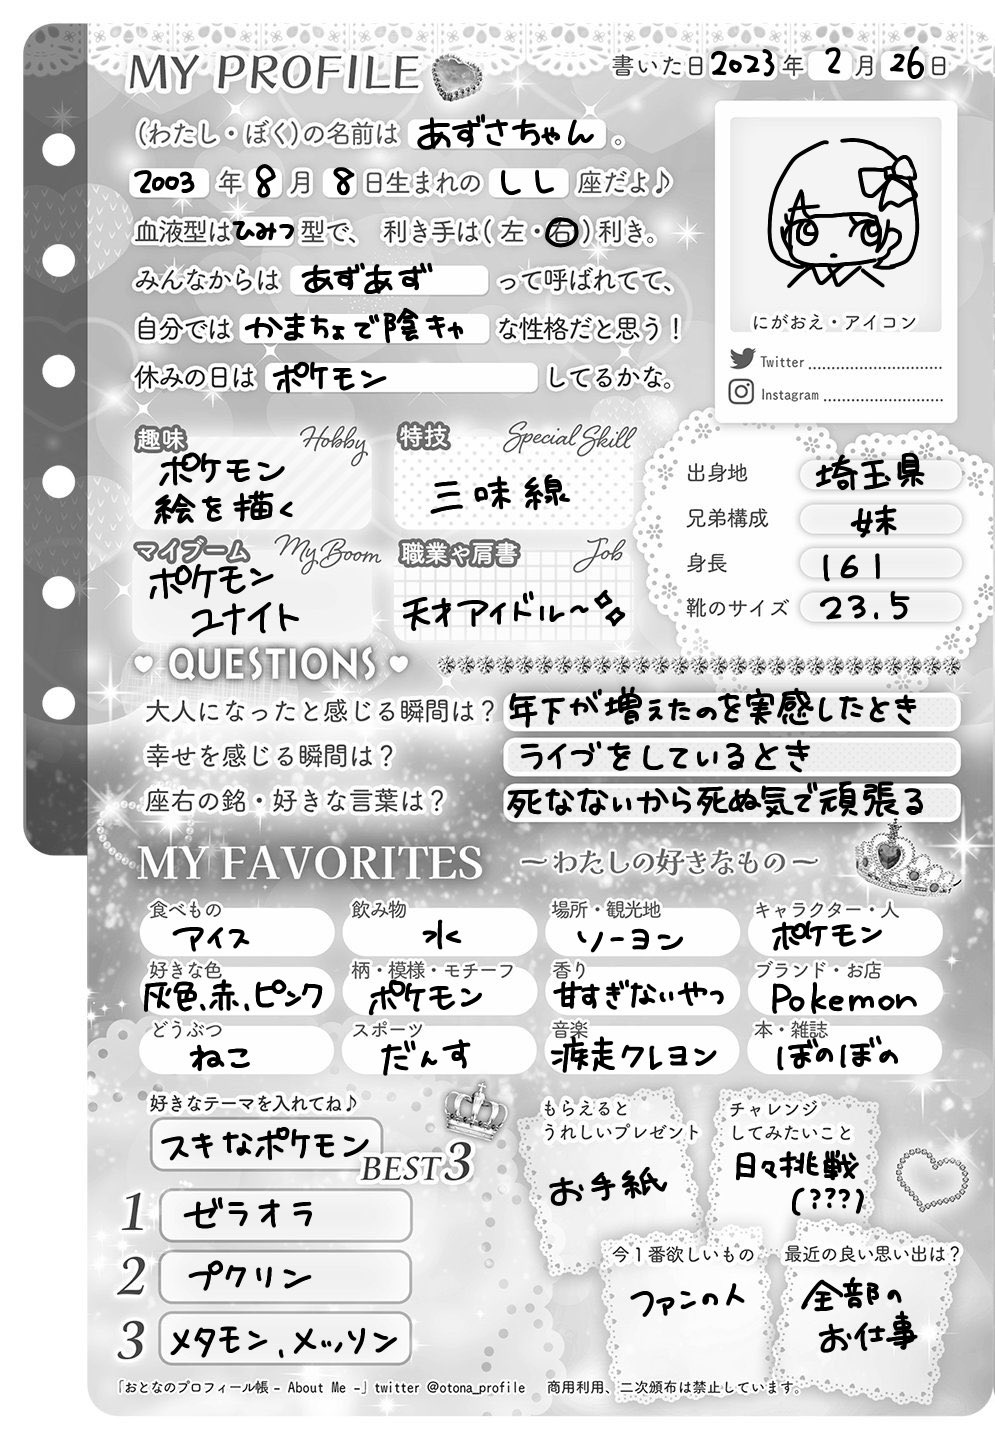 MY PROFILE
書いた日 2023 年 2 月 26 日
(わたし・ぼく)の名前は あずさちゃん 。
2003 年 8 月 8 日生まれの しし 座だよ♪
血液型は ひみつ 型で、 利き手は( 左・右 )利き。
みんなからは あずあず って呼ばれてて、
自分では かまちょで陰キャ な性格だと思う！
休みの日は ポケモン してるかな。
にがおえ・アイコン
Twitter
Instagram
趣味 Hobby
ポケモン
絵を描く
特技 Special Skill
三味線
マイブーム My Boom
ポケモン
ユナイト
職業や肩書 Job
天才アイドル〜
出身地 埼玉県
兄弟構成 妹
身長 161
靴のサイズ 23.5
QUESTIONS
大人になったと感じる瞬間は？ 年下が増えたのを実感したとき
幸せを感じる瞬間は？ ライブをしているとき
座右の銘・好きな言葉は？ 死なないから死ぬ気で頑張る
MY FAVORITES 〜わたしの好きなもの〜
食べもの
アイス
飲み物
水
場所・観光地
ソーヨン
キャラクター・人
ポケモン
好きな色
灰色、赤、ピンク
柄・模様・モチーフ
ポケモン
香り
甘すぎないやつ
ブランド・お店
Pokemon
どうぶつ
ねこ
スポーツ
だんす
音楽
疾走クレヨン
本・雑誌
ぼのぼの
好きなテーマを入れてね♪
スキなポケモン
BEST3
1 ゼラオラ
2 プクリン
3 メタモン、メッソン
もらえると
うれしいプレゼント
お手紙
チャレンジ
してみたいこと
日々挑戦
(???)
今1番欲しいもの
ファンの人
最近の良い思い出は？
全部の
お仕事
「おとなのプロフィール帳 - About Me -」twitter @otona_profile 商用利用、二次頒布は禁止しています。